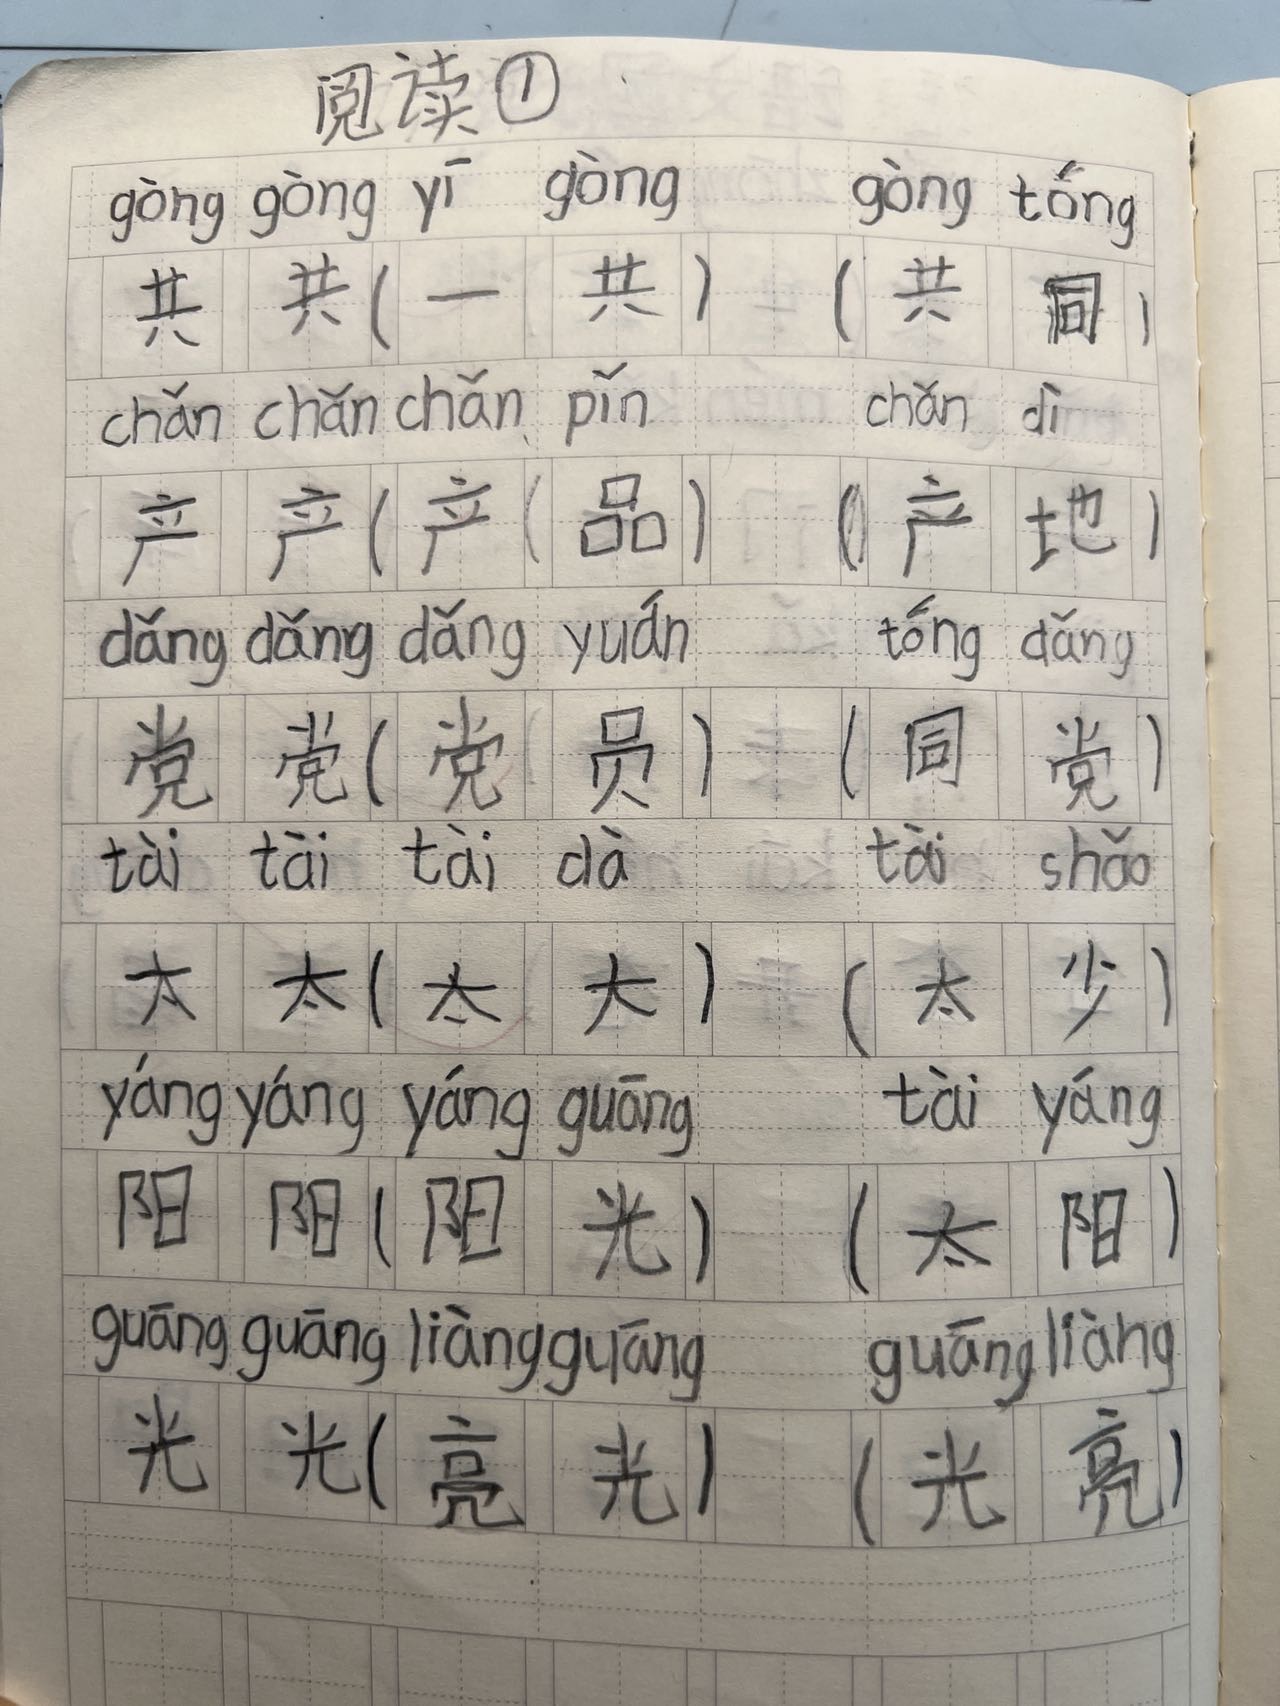 阅读①
gòng gòng yī gòng gòng tóng
共 共(一 共) (共 同)
chǎn chǎn chǎn pǐn chǎn dì
产 产(产 品) (产 地)
dǎng dǎng dǎng yuán tóng dǎng
党 党(党 员) (同 党)
tài tài tài dà tài shǎo
太 太(太 大) (太 少)
yáng yáng yáng guāng tài yáng
阳 阳(阳 光) (太 阳)
guāng guāng liàng guāng guāng liàng
光 光(亮 光) (光 亮)